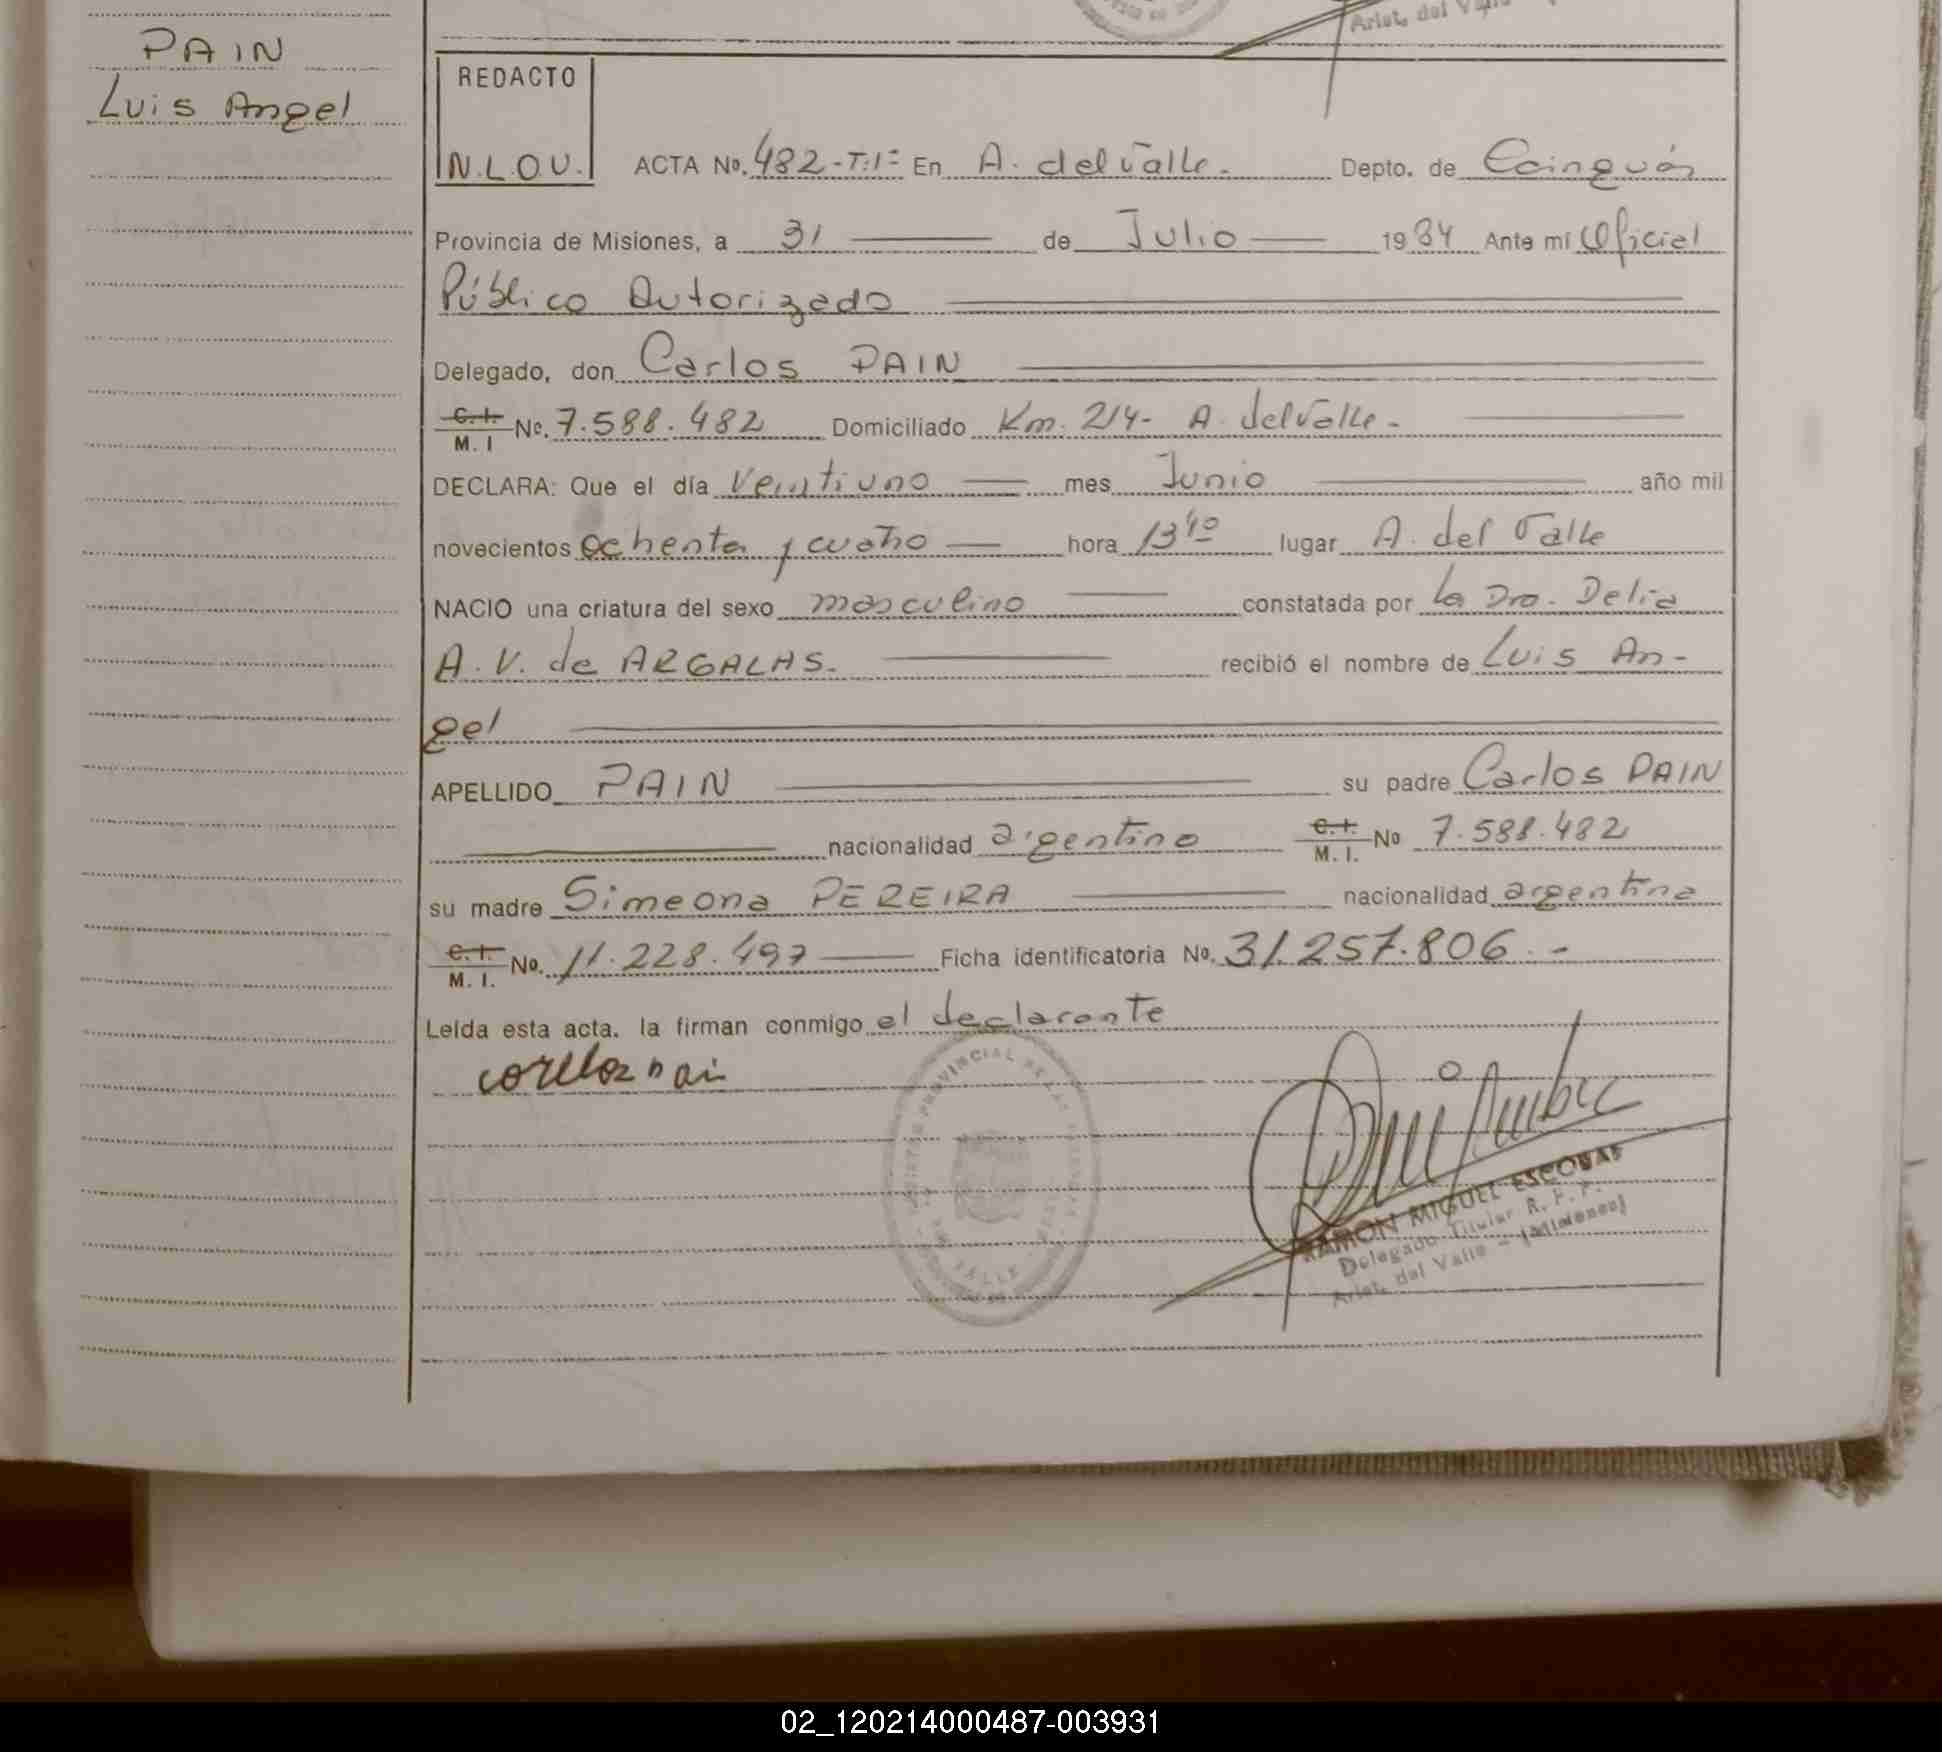 PAIN
Luis Angel
Arist. del Valle
REDACTO
N.L.O.V. ACTA No. 482-T:1º En A. del Valle. Depto. de Cainguás
Provincia de Misiones, a 31 de Julio 1984 Ante mí Oficial
Público Autorizado
Delegado, don Carlos PAIN
C. I.
M. I No. 7.588.482 Domiciliado Km. 214- A. del Valle-
DECLARA: Que el día Veintiuno mes Junio año mil
novecientos ochenta y cuatro hora 13⁴⁰ lugar A. del Valle
NACIO una criatura del sexo masculino constatada por la Dra. Delia
A. V. de ARGALAS. recibió el nombre de Luis An-
gel
APELLIDO PAIN su padre Carlos PAIN
nacionalidad argentino C. I. M. I. No 7.588.482
su madre Simeona PEREIRA nacionalidad argentina
C. I. M. I. No. 11.228.497 Ficha identificatoria No. 31.257.806.-
Leída esta acta, la firman conmigo el declarante
RAMON MIGUEL ESCOBAR
Delegado Titular R. P. P.
Arist. del Valle - (Misiones)
02_120214000487-003931